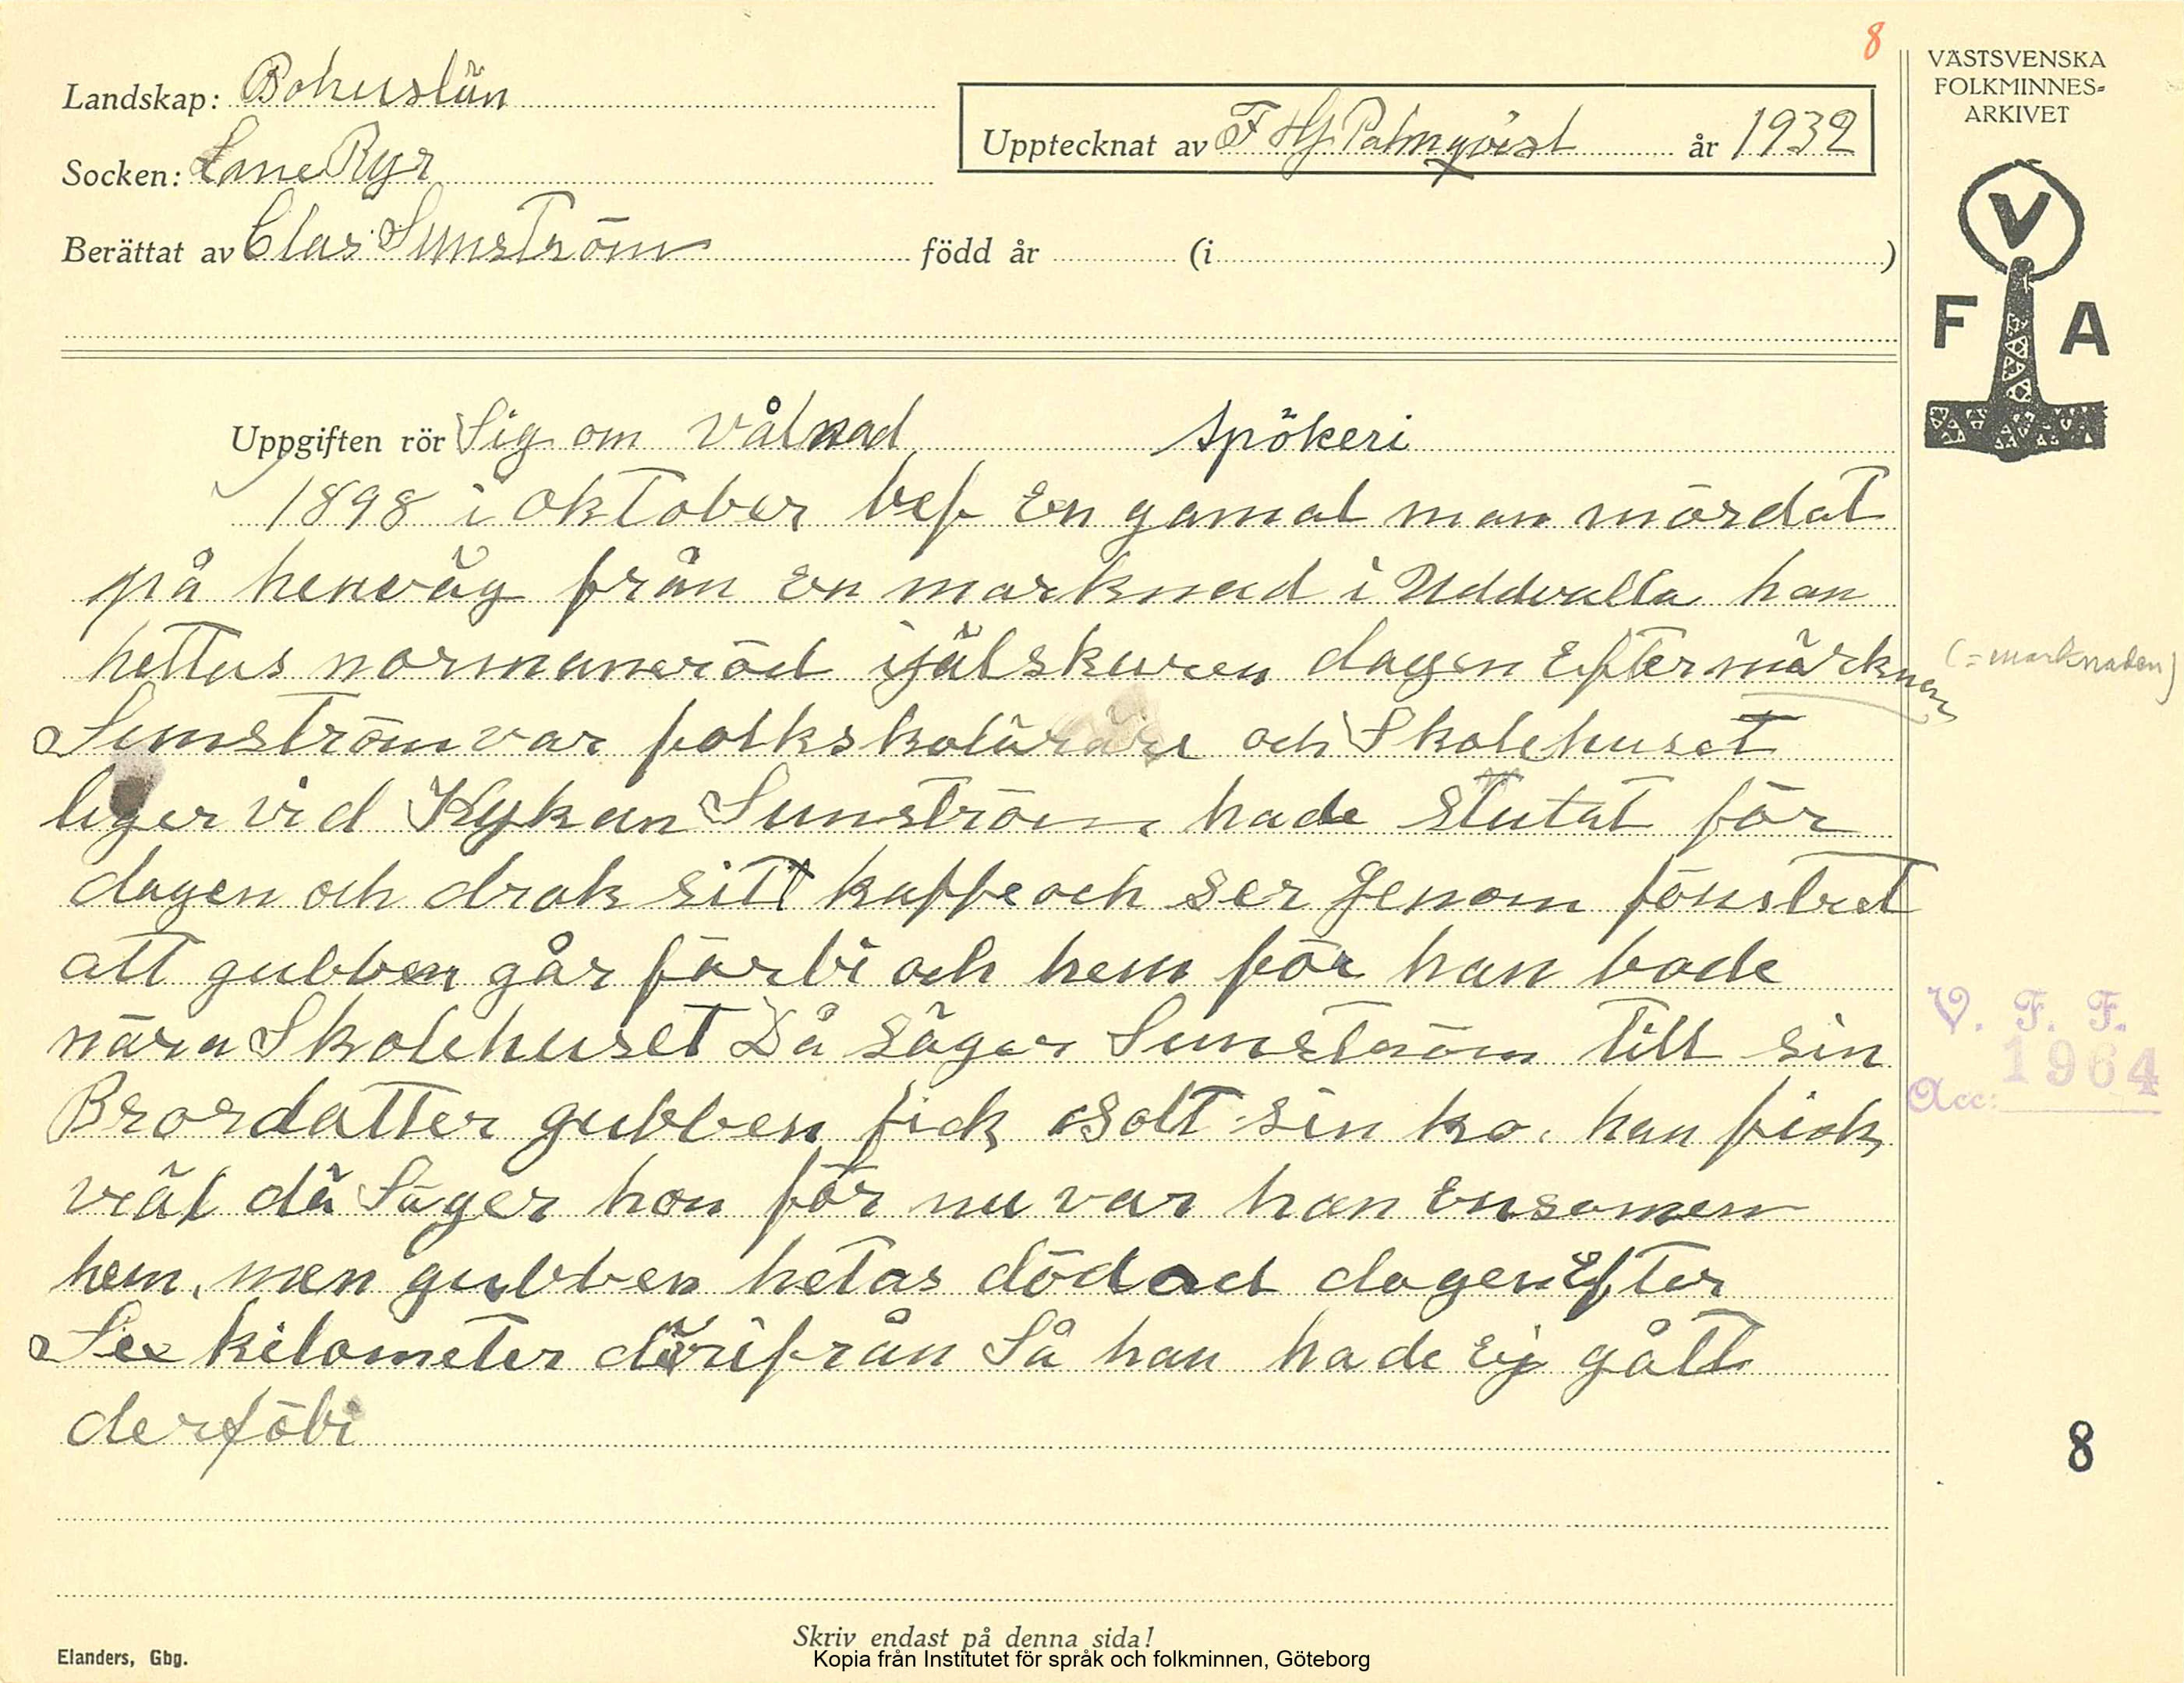 8
Landskap: Bohuslän
Socken: Lane Ryr
Berättat av Clas Sunström född år (i )
Upptecknat av F Hj. Palmqvist år 1932
VÄSTSVENSKA
FOLKMINNES-
ARKIVET
V
F A
Uppgiften rör Sig om vålnad spökeri
1898 i oktober bef En gamal man mördat
på hemväg från En marknad i Uddvalla han
hettas normaneröd ijälskuren dagen Efter märknan
(=marknaden)
Sunström var folkskolärare och Skolehuset
liger vid Kykan Sunström hade slutat för
dagen och drak sitt kaffe och ser genom fönstret
att gubben går förbi och hem för han bode
nära Skolehuset Då säger Sunström till sin
Brordatter gubben fick solt sin ko. han fick
väl då Säger hon för nu var han Ensamen
hem. men gubben hetas dödad dagen Efter
Sex kilometer därifrån Så han hade Ej gått
derföbi
V. F. F.
Acc: 1964
8
Skriv endast på denna sida!
Elanders, Gbg.
Kopia från Institutet för språk och folkminnen, Göteborg